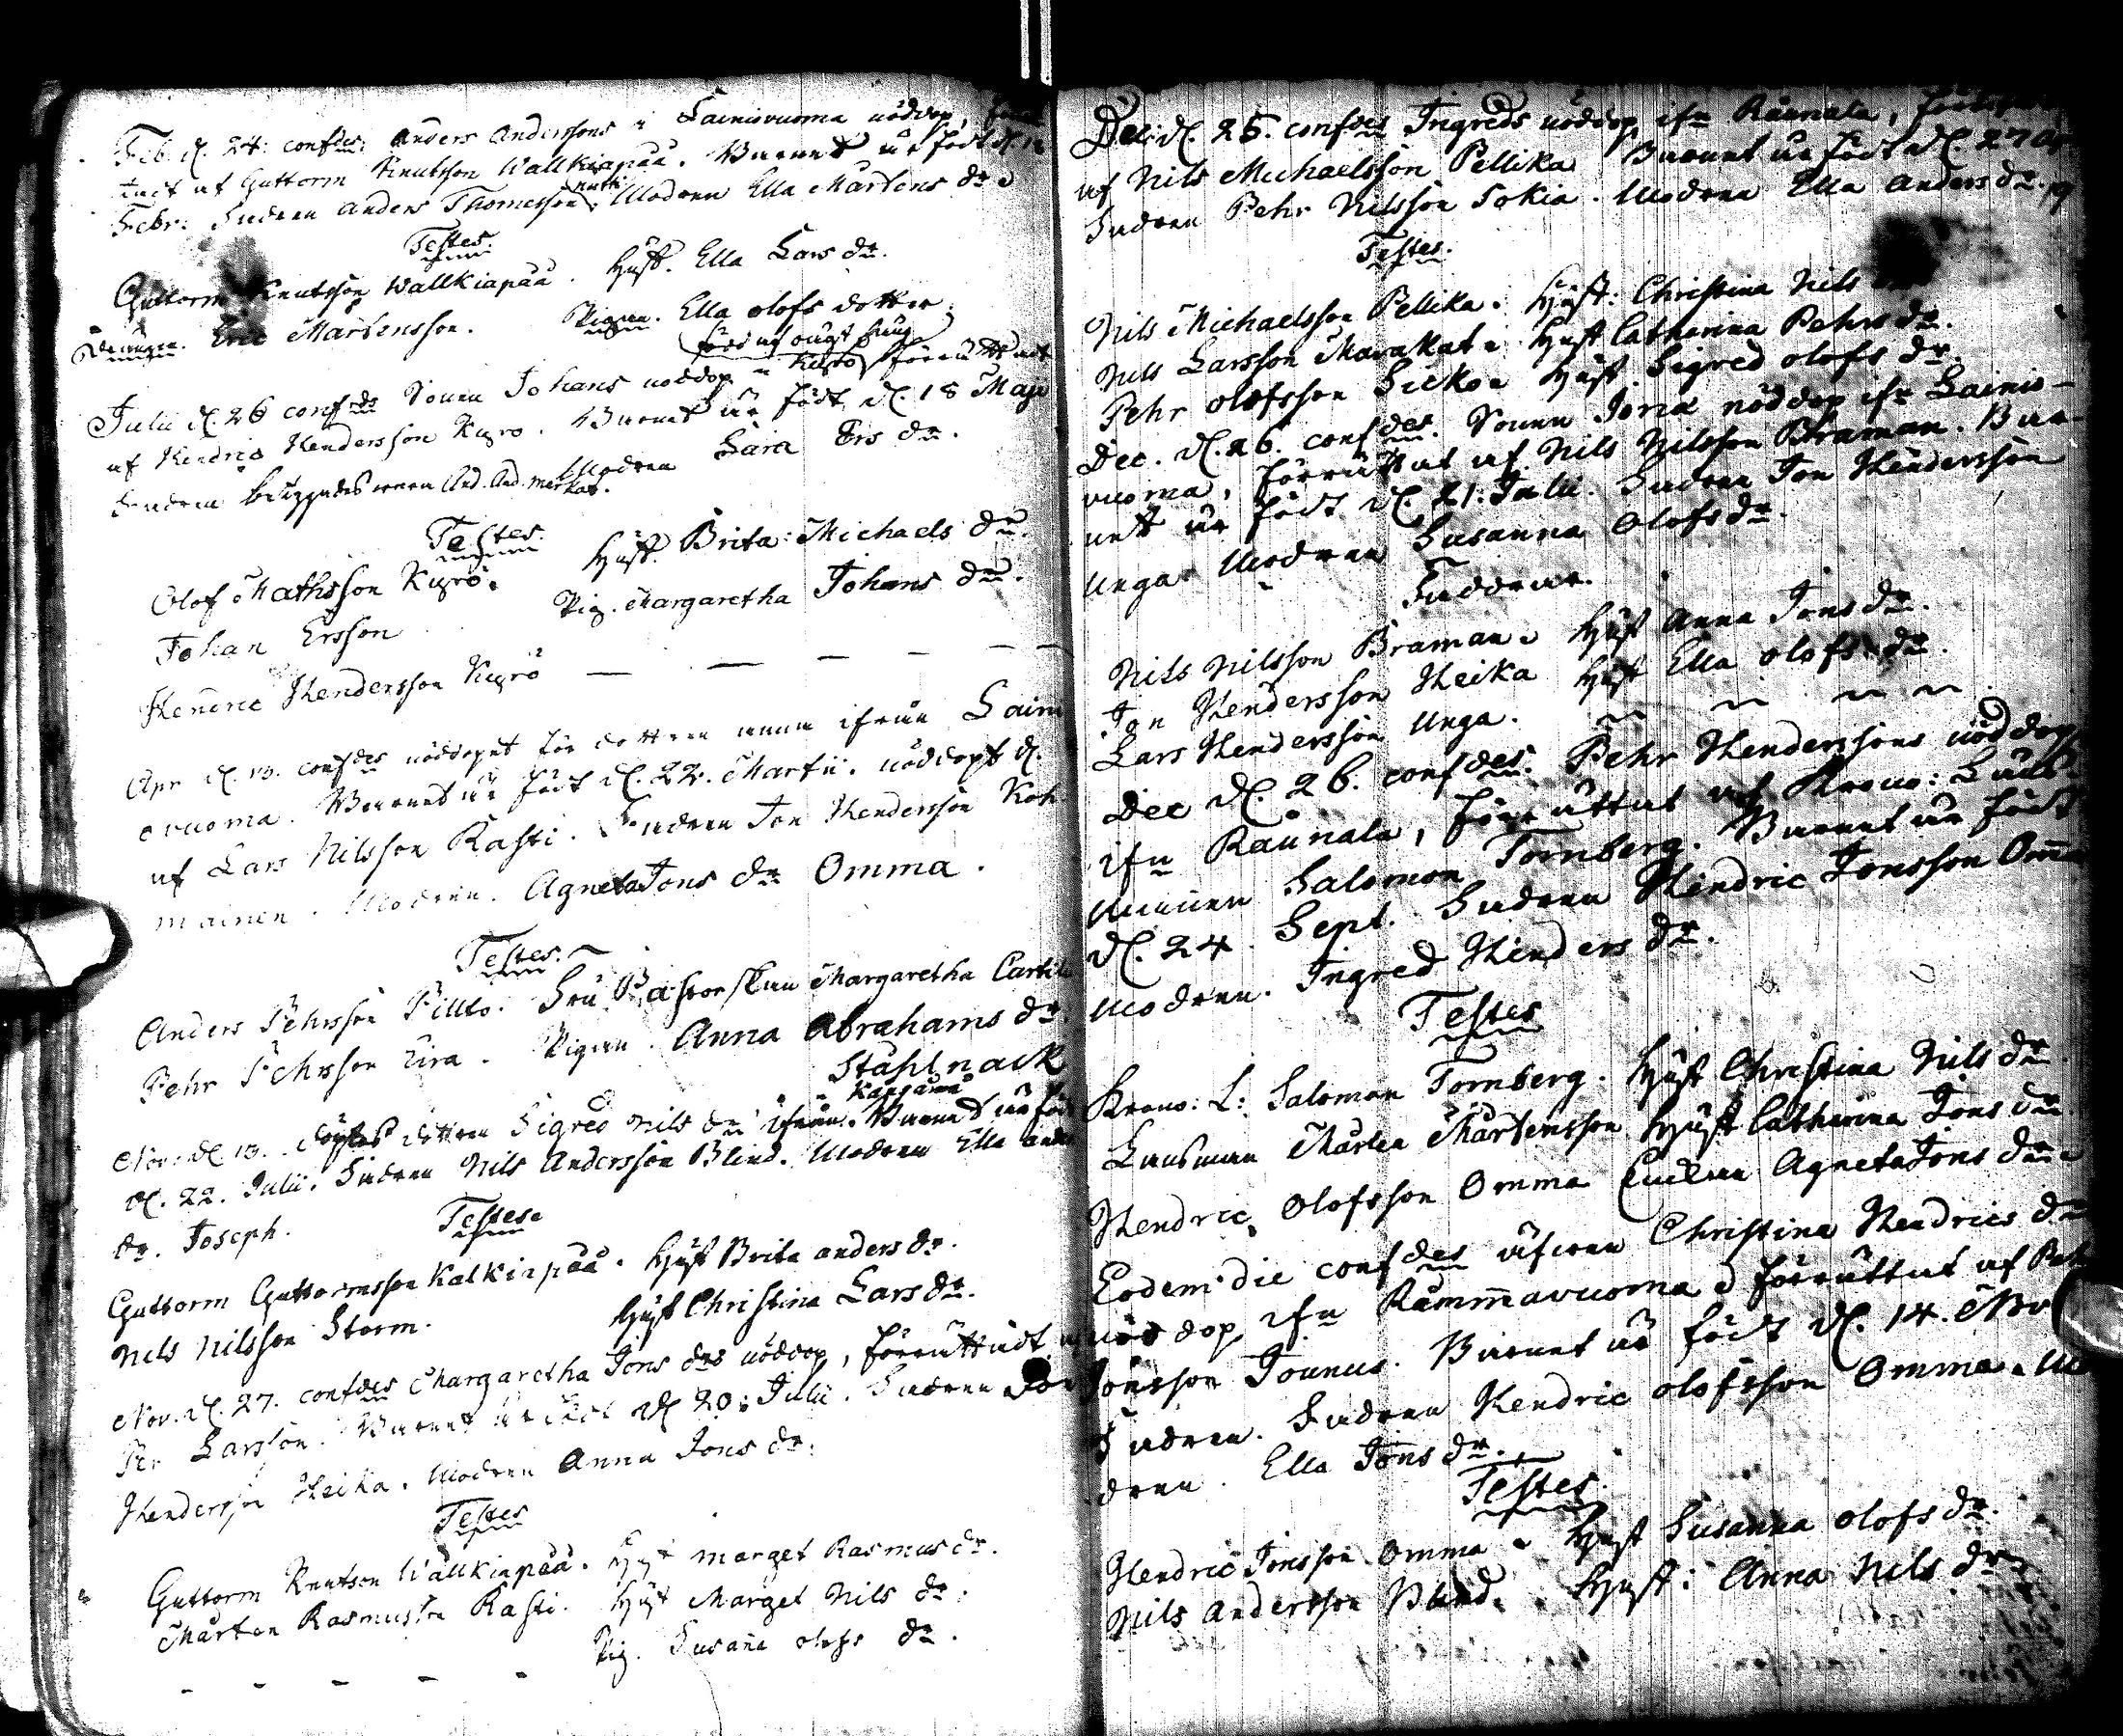 Feb. d. 24. confdes Anders Anderssons i Lainiovuoma nöddop, förut
tadt af Guttorm Knutsson Wallkiapää. Barnet är födt d. 12
Febr. Fadren Anders Thomesson nutti Modren Ella Mårtens dr.
Testes.
Guttorm Knutsson Wallkiapää. Hust. Ella Lars dr.
Drängen. Eric Mårtensson. Pigan. Ella Olofs dotter.
Julii d. 26 confds Sonen Johans nöddop i Kyrö, förrättadt
af Hendric Hendersson Kyrö. Barnet är födt d. 18 Maji
Fadren And. And. Markas. Modren Sara Ers dr.
Testes.
Olof Mathsson Kyrö. Hust. Brita Michaels dr.
Johan Ersson Pig. Margaretha Johans dr.
Henric Hendersson Kyrö — — — — —
Apr d. 13. confdes nöddopet för dottren Anna ifrån Laini
ovuoma. Barnet är födt d. 22. Martii. nöddopt d.
af Lars Nilsson Rasti. Fadren Jon Hendersson Koh
mainen. Modren. Agneta Jons dr Omma.
Testes.
Anders Pehrsson Piltto. Fru Pastorskan Margaretha Curtel
Pehr Pehrsson Eira. Pigan. Anna Abrahams dr.
Stahlnack
Nov: d. 13. döptes dottren Sigred Nils dr ifrån Barnet är född
d. 22. Julii. Fadren Nils Andersson Blind. Modren Ella Anders
dr. Joseph.
Testes.
Guttorm Guttormsson Kalkiapää. Hust Brita Anders dr.
Nils Nilsson Storm. Hust Christina Lars dr.
Nov. d. 27. confdes Margaretha Jons drs nöddop, förrättadt
Per Larsson. Barnet är födt d. 20. Julii. Fadren Jon
Hendersson Heika. Modren Anna Jons dr.
Testes
Guttorm Knutson Wallkiapää. Hust Marget Rasmus dr.
Mårten Rasmusson Rasti. Hust Marget Nils dr.
- - - - - Pig. Susana Olofs dr.
Dec: d. 25. confdes Ingreds nöddop ifn Raunala,
af Nils Michaelsson Pellika Barnet är födt d. 27
Fadren Pehr Nilsson Tokia. Modren Ella Anders dr.
Testes.
Nils Michaelsson Pellika. Hust: Christina Nils
Nils Larsson Marakat. Hust Catharina Pehrs dr.
Pehr Olofsson Sieko. Hust. Sigred Olofs dr.
Dec. d. 26. confdes. Sonen nöddop ifn Lainio-
vuoma, förrättat af Nils Nilsson Braman. Bar-
net är födt d. 21. Julii. Fadren Jon Hendersson
Unga. Modren Susanna Olofs dr.
Faddrar.
Nils Nilsson Braman. Hust Anna Jons dr.
Jon Hendersson Heika Hust Ella Olofs dr.
Lars Hendersson Unga.
Dec d. 26. confdes. Pehr Henderssons nöddop
ifn Raunala, förrättat af Krono: Läns-
mannen Salomon Tornberg. Barnet är födt
d. 24 Sept. Fadren Hendric Jonsson Omma
Modren. Ingred Henders dr.
Testes
Krono: L: Salomon Tornberg. Hust Christina Nils dr
Lansman Mårten Mårtensson Hust Catharina Jons dr
Hendric Olofsson Omma Enkan Agneta Jons dr.
Eodem die confdes äfwen Christina Hendrics dr
nöddop, ifn Rommavuoma förrättat af Pehr
Jonsson Jounus. Barnet är födt d. 14. Nov
Fadren. Fadren Hendric Olofsson Omma. Mo
dren. Ella Jons dr.
Testes.
Hendric Jonsson Omma. Hust Susanna Olofs dr.
Nils Andersson Blind. Hust: Anna Nils dr.